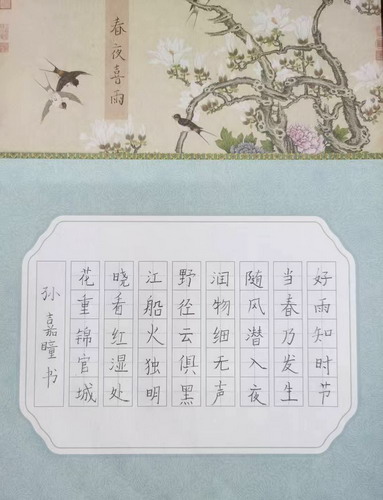 春夜喜雨
好雨知时节
当春乃发生
随风潜入夜
润物细无声
野径云俱黑
江船火独明
晓看红湿处
花重锦官城
孙嘉瞳书